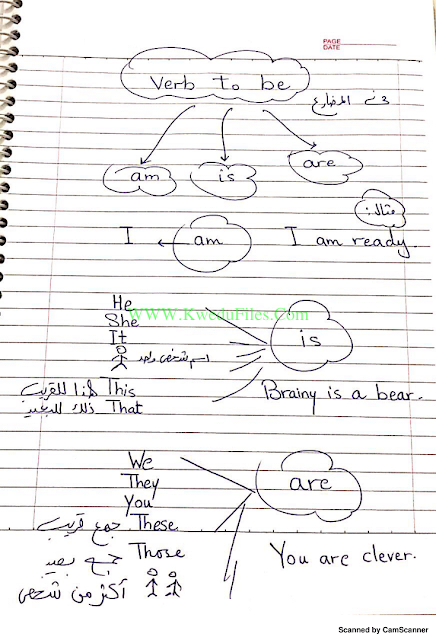 PAGE
DATE
Verb to be
am is are
مثال:
I am I am ready.
He
WWW.KweduFiles.Com
She
It is
اسم شخص واحد
هذا للقريب This
Brainy is a bear.
ذلك للبعيد That
We
They are
You
جمع قريب These
جمع بعيد Those
You are clever.
أكثر من شخص
Scanned by CamScanner